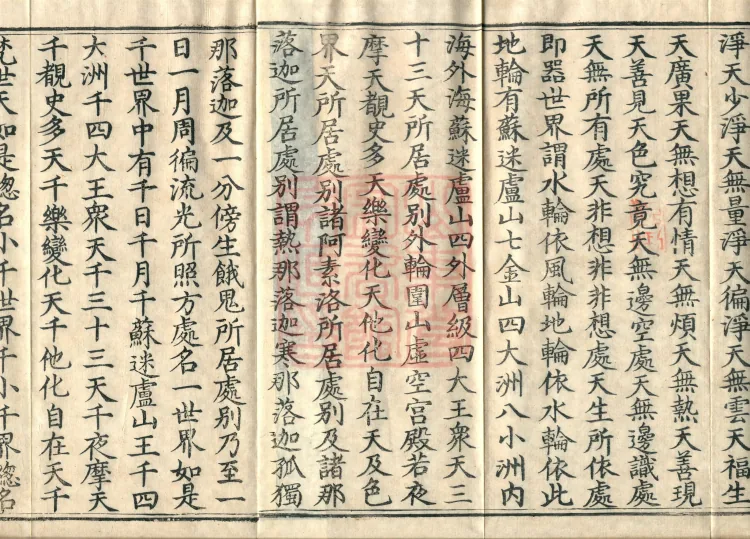 淨天少淨天無量淨天徧淨天無雲天福生
天廣果天無想有情天無煩天無熱天善現
天善見天色究竟天無邊空處天無邊識處
天無所有處天非想非非想處天生所依處
即器世界謂水輪依風輪地輪依水輪依此
地輪有蘇迷盧山七金山四大洲八小洲內
海外海蘇迷盧山四外層級四大王衆天三
十三天所居處別外輪圍山虛空宫殿若夜
摩天覩史多天樂變化天他化自在天及色
界天所居處別諸阿素洛所居處別及諸那
落迦所居處別謂熱那落迦寒那落迦孤獨
那落迦及一分傍生餓鬼所居處別乃至一
日一月周徧流光所照方處名一世界如是
千世界中有千日千月千蘇迷盧山王千四
大洲千四大王衆天千三十三天千夜摩天
千覩史多天千樂變化天千他化自在天千
梵世天如是緫名小千世界千小千界緫名